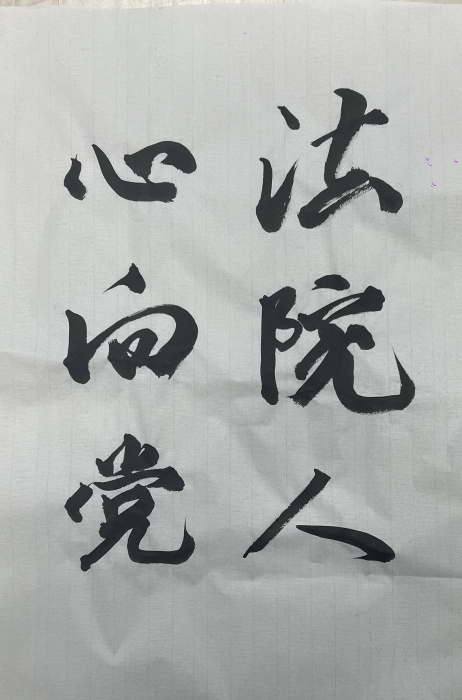 法院人
心向党